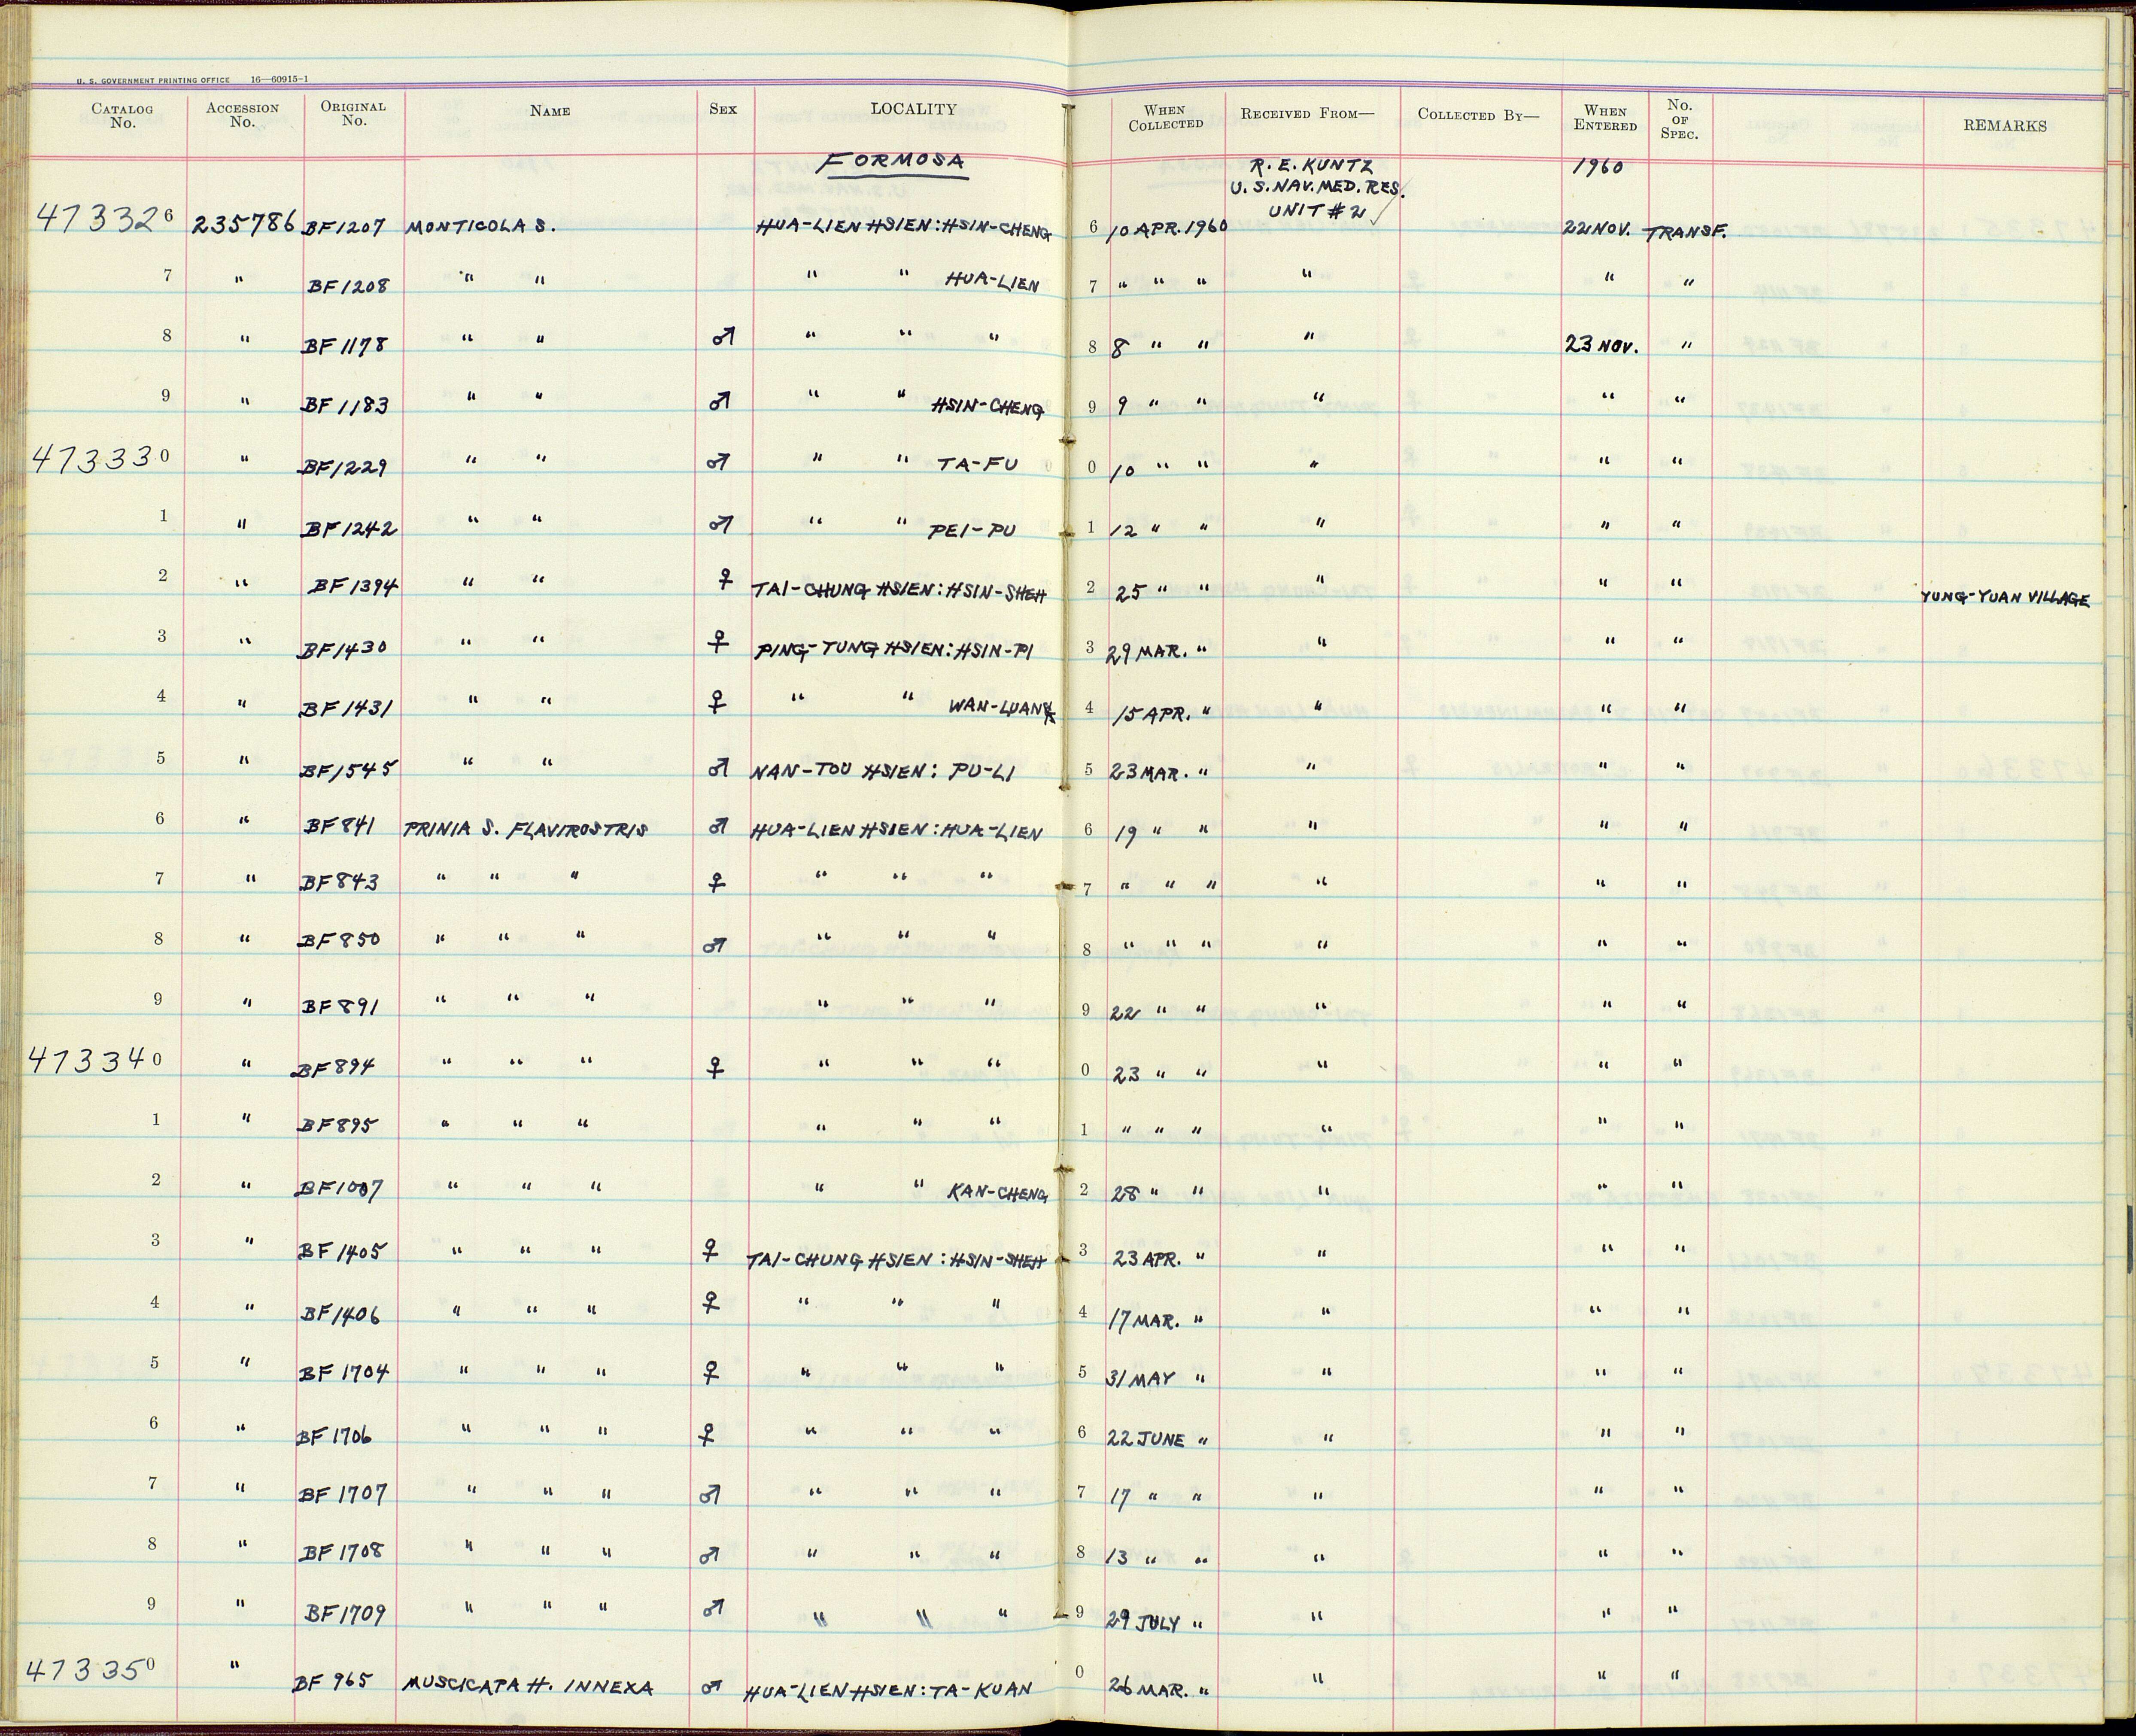 U. S. GOVERNMENT PRINTING OFFICE 16—60915-1
CATALOG No. ACCESSION No. ORIGINAL No. NAME SEX LOCALITY WHEN COLLECTED RECEIVED FROM— COLLECTED BY— WHEN ENTERED No. OF SPEC. REMARKS
FORMOSA R. E. KUNTZ 1960
U. S. NAV. MED. RES.
UNIT #2 ✓
473326 235786 BF1207 MONTICOLA S. HUA-LIEN HSIEN: HSIN-CHENG 6 10 APR. 1960 22 NOV. TRANSF.
7 " BF1208 " " " " HUA-LIEN 7 " " " " " "
8 " BF1178 " " ♂ " " " 8 8 " " " 23 NOV. "
9 " BF1183 " " ♂ " " HSIN-CHENG 9 9 " " " " "
473330 " BF1229 " " ♂ " " TA-FU 0 10 " " " " "
1 " BF1242 " " ♂ " " PEI-PU 1 12 " " " " "
2 " BF1394 " " ♀ TAI-CHUNG HSIEN: HSIN-SHEH 2 25 " " " " " YUNG-YUAN VILLAGE
3 " BF1430 " " ♀ PING-TUNG HSIEN: HSIN-PI 3 29 MAR. " " " "
4 " BF1431 " " ♀ " " WAN-LUAN 4 15 APR. " " " "
5 " BF1545 " " ♂ NAN-TOU HSIEN: PU-LI 5 23 MAR. " " " "
6 " BF841 PRINIA S. FLAVIROSTRIS ♂ HUA-LIEN HSIEN: HUA-LIEN 6 19 " " " " "
7 " BF843 " " " ♀ " " " 7 " " " " " "
8 " BF850 " " " ♂ " " " 8 " " " " " "
9 " BF891 " " " " " " 9 22 " " " " "
473340 " BF894 " " " ♀ " " " 0 23 " " " " "
1 " BF895 " " " " " " 1 " " " " " "
2 " BF1007 " " " " " KAN-CHENG 2 28 " " " " "
3 " BF1405 " " " ♀ TAI-CHUNG HSIEN: HSIN-SHEH 3 23 APR. " " " "
4 " BF1406 " " " ♀ " " " 4 17 MAR. " " " "
5 " BF1704 " " " ♀ " " " 5 31 MAY " " " "
6 " BF1706 " " " ♀ " " " 6 22 JUNE " " " "
7 " BF1707 " " " ♂ " " " 7 17 " " " " "
8 " BF1708 " " " ♂ " " " 8 13 " " " " "
9 " BF1709 " " " ♂ " " " 9 29 JULY " " " "
473350 " BF965 MUSCICAPA H. INNEXA ♂ HUA-LIEN HSIEN: TA-KUAN 0 26 MAR. " " " "